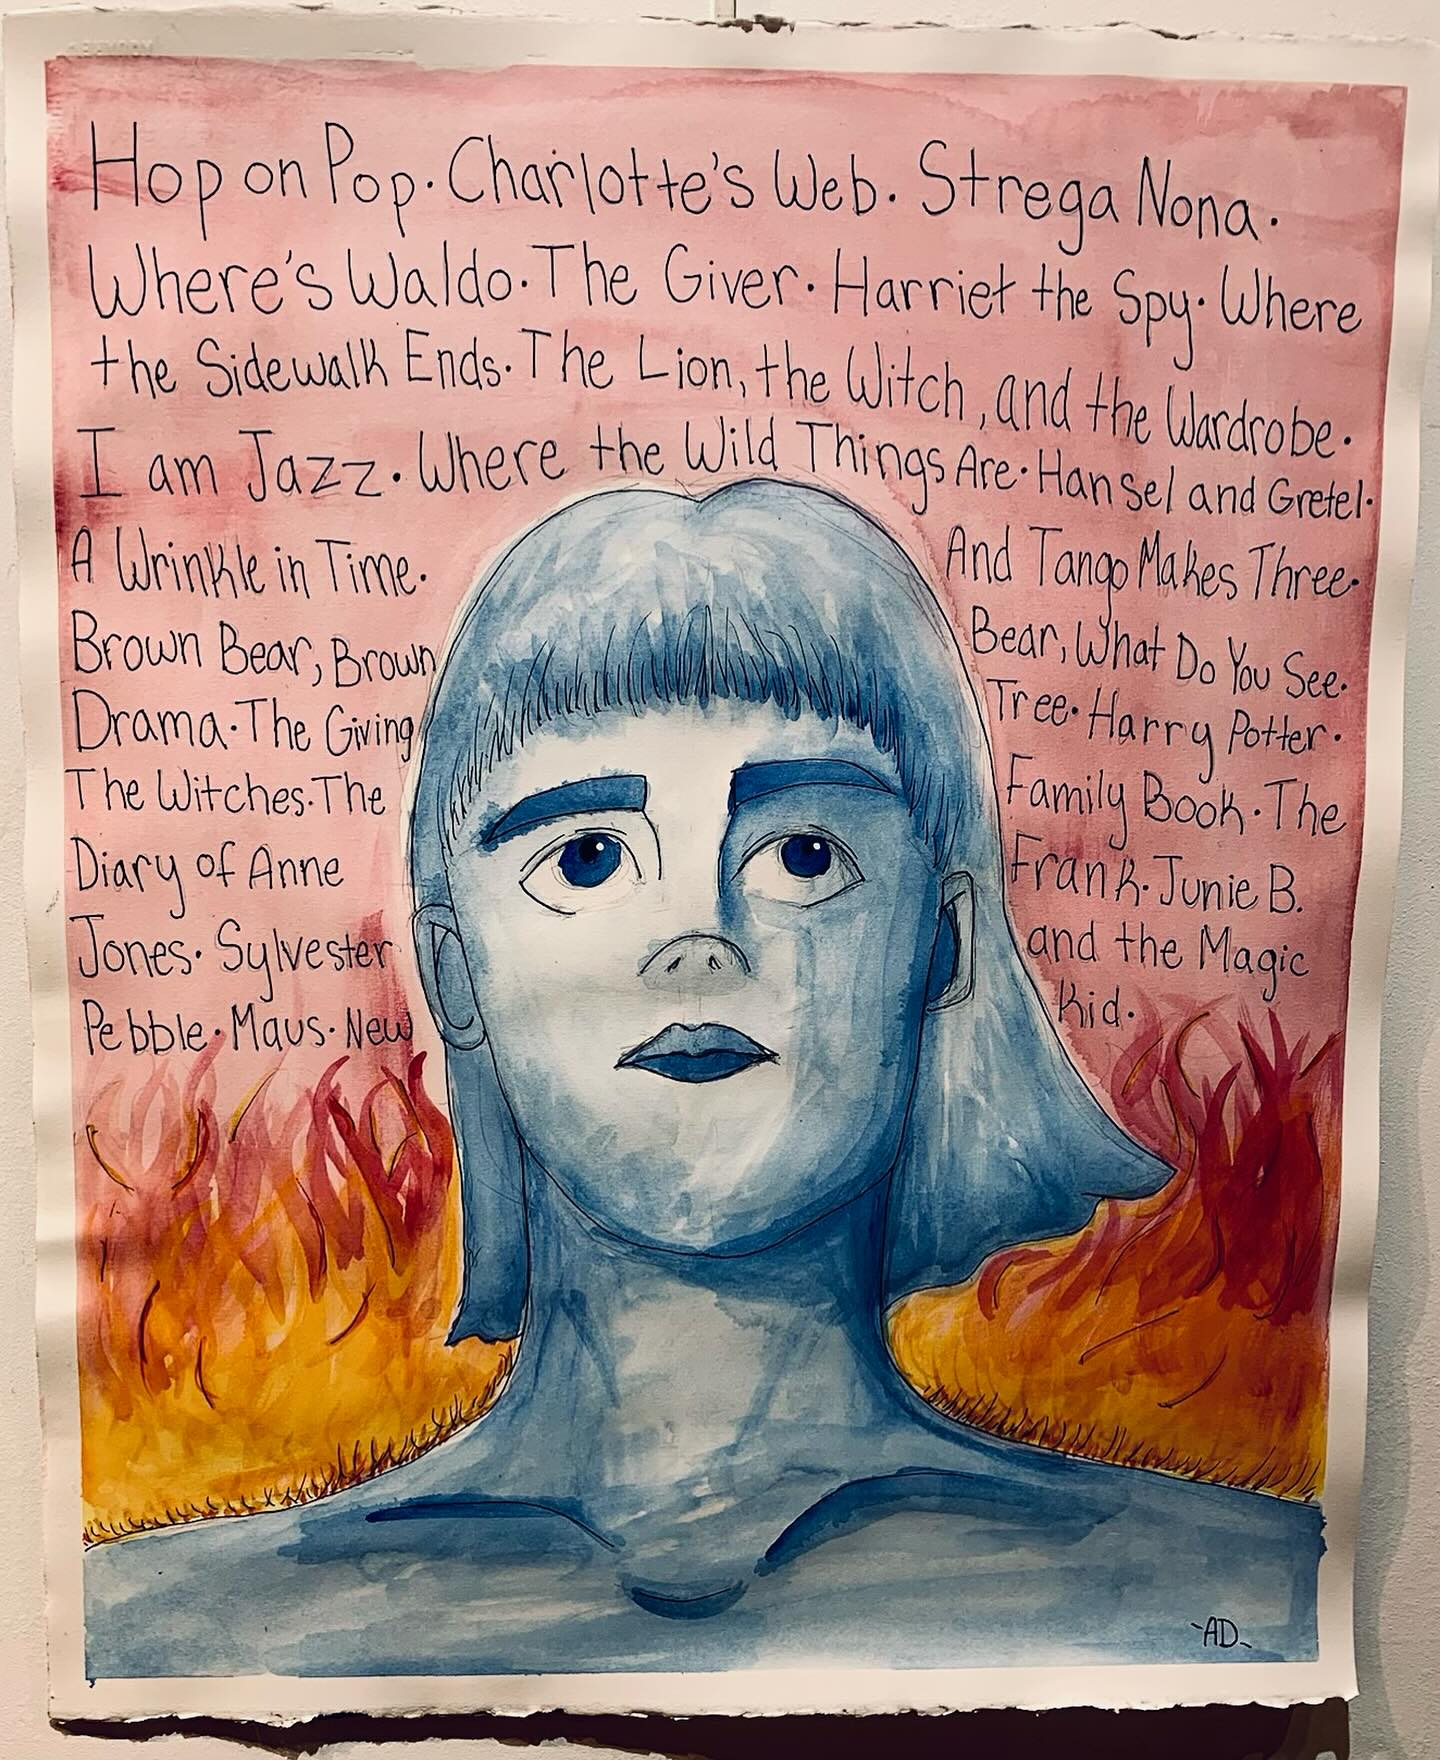 Hop on Pop. Charlotte's Web. Strega Nona.
Where's Waldo. The Giver. Harriet the Spy. Where
the Sidewalk Ends. The Lion, the Witch, and the Wardrobe.
I am Jazz. Where the Wild Things Are. Hansel and Gretel.
A Wrinkle in Time. And Tango Makes Three.
Brown Bear, Brown Bear, What Do You See.
Drama. The Giving Tree. Harry Potter.
The Witches. The Family Book. The
Diary of Anne Frank. Junie B.
Jones. Sylvester and the Magic
Pebble. Maus. New Kid.
-AD-